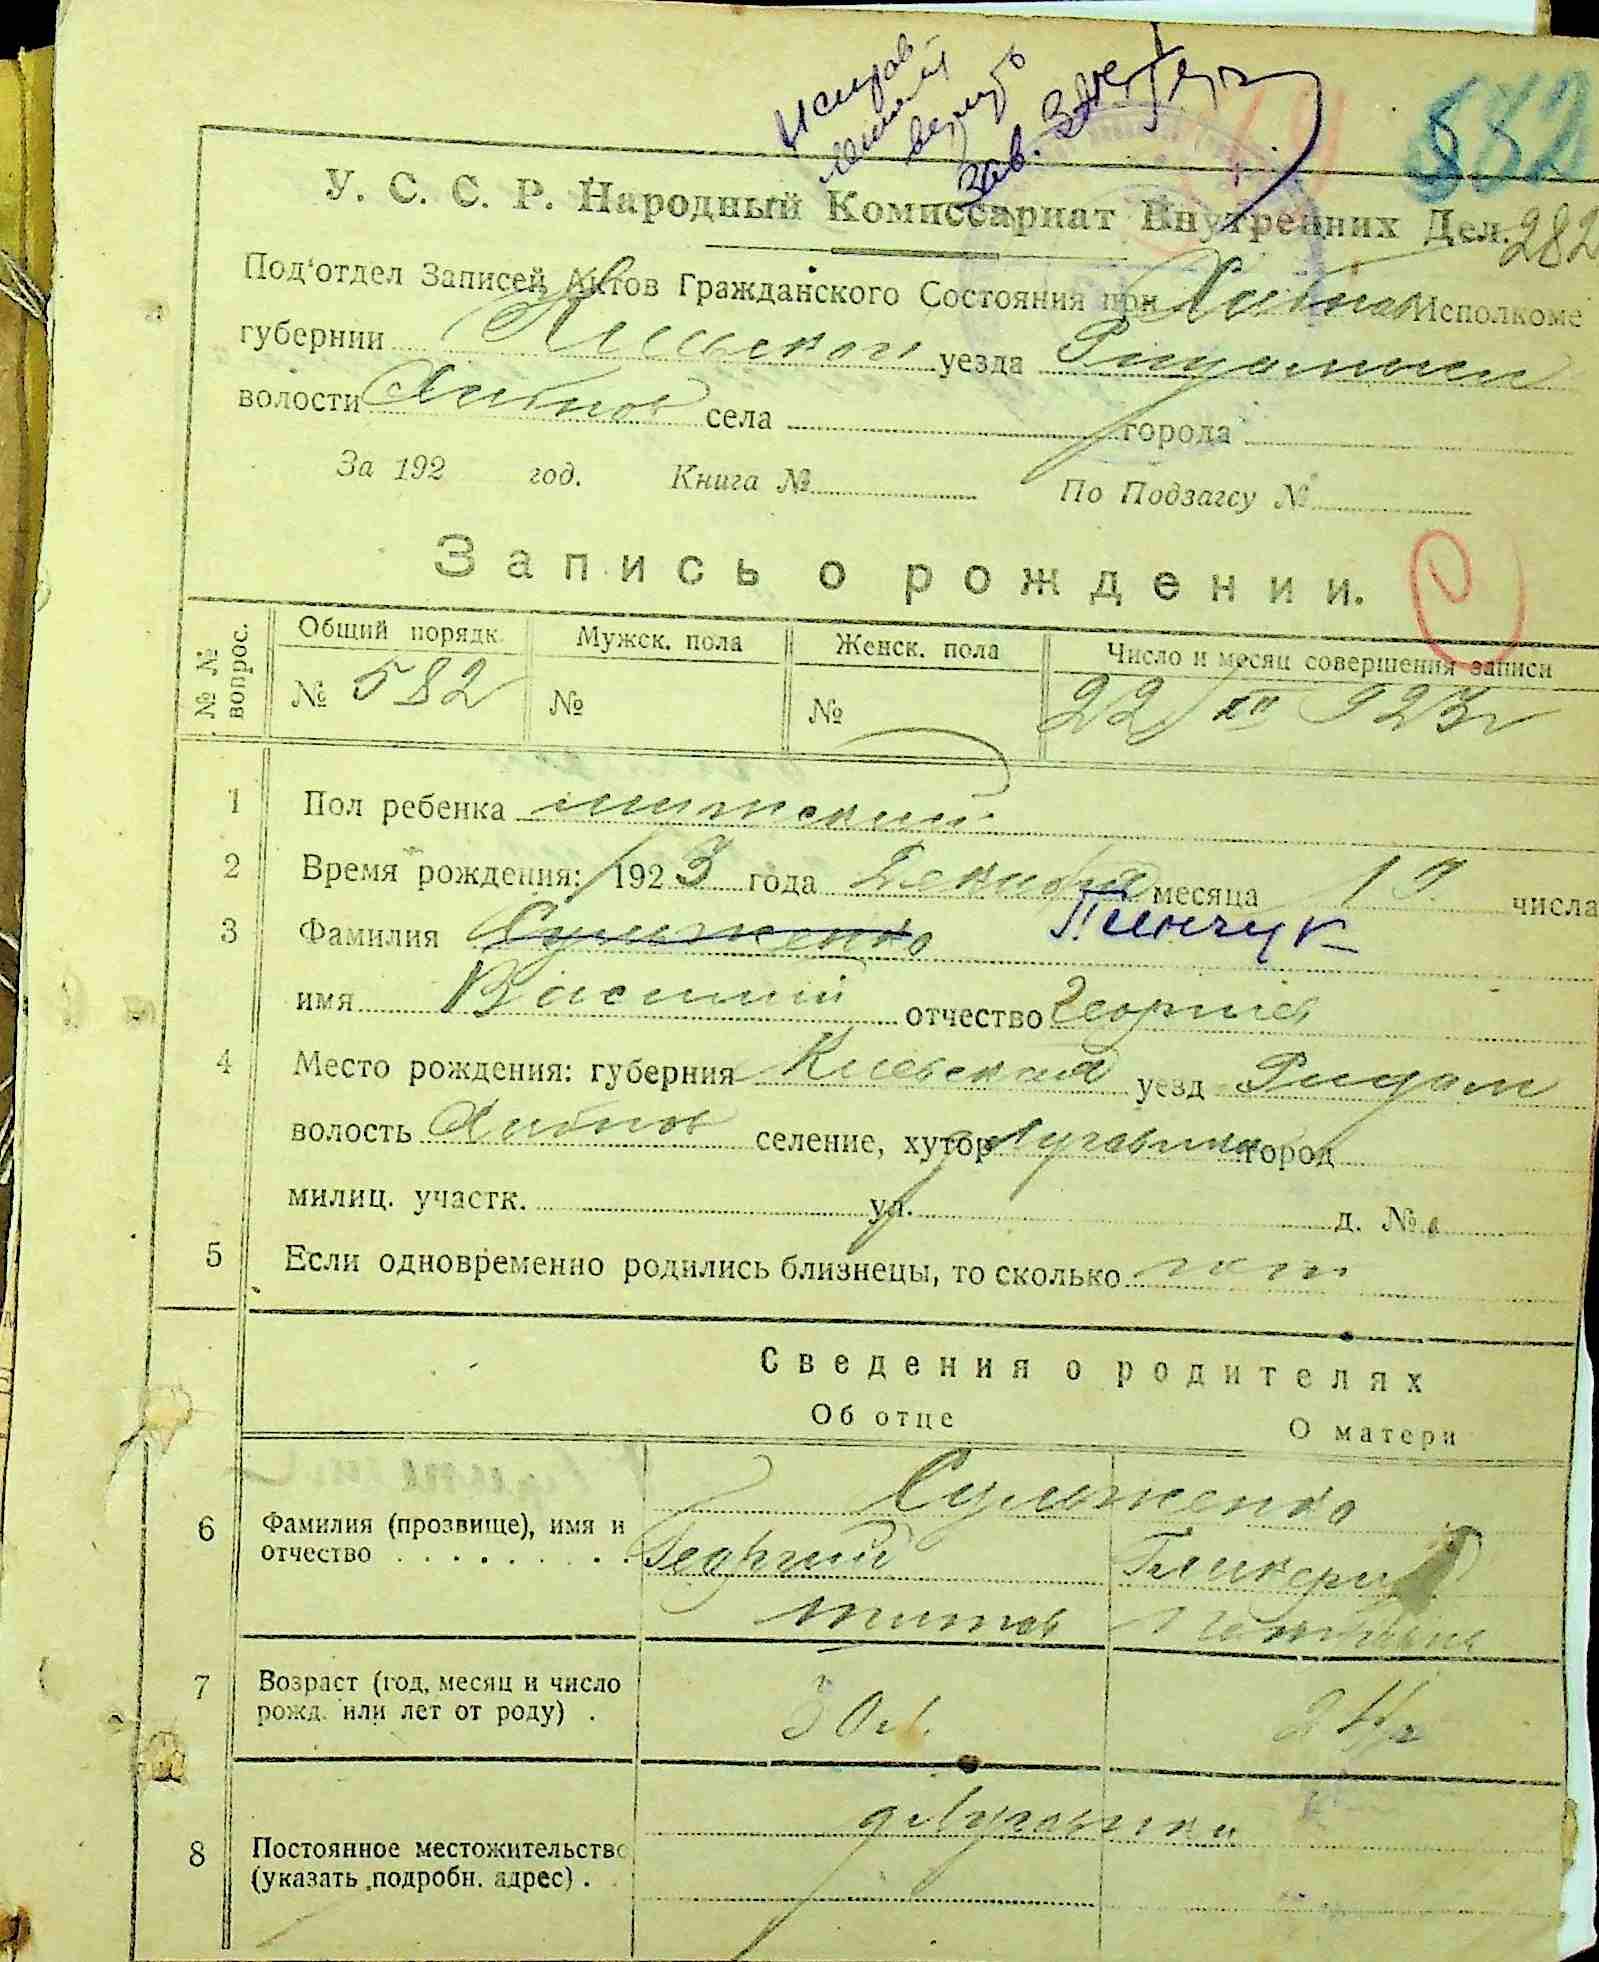 582
У. С. С. Р. Народный Комиссариат Внутренних Дел.
282
Под'отдел Записей Актов Гражданского Состояния при Хабнов Исполкоме
губернии Киевской уезда
волости Хабнов села города
За 192 год. Книга № По Подзагсу №
Запись о рождении.
№ № вопрос.
Общий порядк. Мужск. пола Женск. пола Число и месяц совершения записи
№ 582 № № 22 XII 923 г
1 Пол ребенка мужский
2 Время рождения: 1923 года Декабря месяца 19 числа
3 Фамилия Сульженко Пинчук
имя Василий отчество Георгиев
4 Место рождения: губерния Киевская уезд
волость Хабнов селение, хутор Луговики город
милиц. участк. ул. д. №
5 Если одновременно родились близнецы, то сколько
Сведения о родителях
Об отце О матери
Сульженко
6 Фамилия (прозвище), имя и
отчество Георгий Гликерия
Титов
7 Возраст (год, месяц и число
рожд. или лет от роду) . 30 л.
д Луговики
8 Постоянное местожительство
(указать подробн. адрес) .